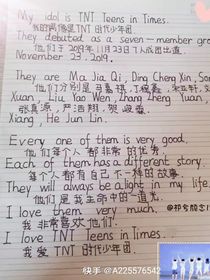 My idol is TNT Teens in Times.
我的偶像是TNT时代少年团
They debuted as a seven-member gro
他们于2019年11月23日7人成团出道
November 23, 2019.
They are Ma Jia Qi, Ding Cheng Xin, Son
他们分别是马嘉祺，丁程鑫，宋亚轩
Xuan, Liu Yao Wen, Zhang Zhen Yuan,
张真源，严浩翔，贺峻霖
Xiang, He Jun Lin.
Every one of them is very good.
他们每个人都非常的优秀
Each of them has a different story.
每个人都有自己不一样的故事
They will always be a light in my life.
他们是我生命中的一道光
I love them very much.
我非常喜欢他们
I love TNT Teens in Times.
我爱TNT时代少年团
快手 @A225576542